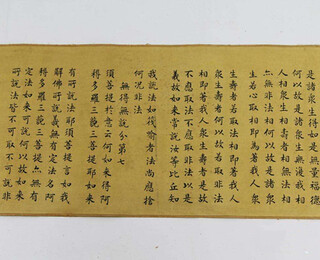 是諸衆生得如是無量福德
何以故是諸衆生無復我相
人相衆生相壽者相無法相
亦無非法相何以故是諸衆
生若心取相即爲著我人衆
生壽者若取法相即著我人
衆生壽者何以故若取非法
相即著我人衆生壽者是故
不應取法不應取非法以是
義故如來常說汝等比丘知
我說法如筏喻者法尚應捨
何況非法
無得無說分第七
須菩提於意云何如來得阿
耨多羅三藐三菩提耶如來
有所說法耶須菩提言如我
解佛所說義無有定法名阿
耨多羅三藐三菩提亦無有
定法如來可說何以故如來
所說法皆不可取不可說非